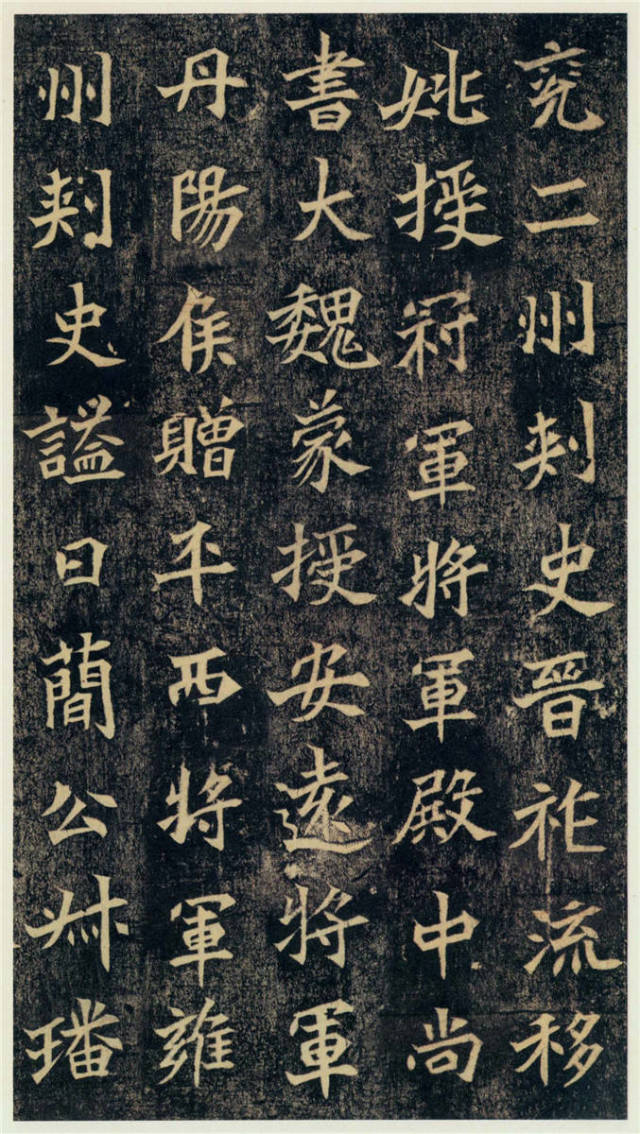 兖二州刾史晋祚流移
姚授冠軍將軍殿中尚
書大魏蒙授安遠將軍
丹陽侯贈平西將軍雍
州刾史謚曰蕳公叔璠